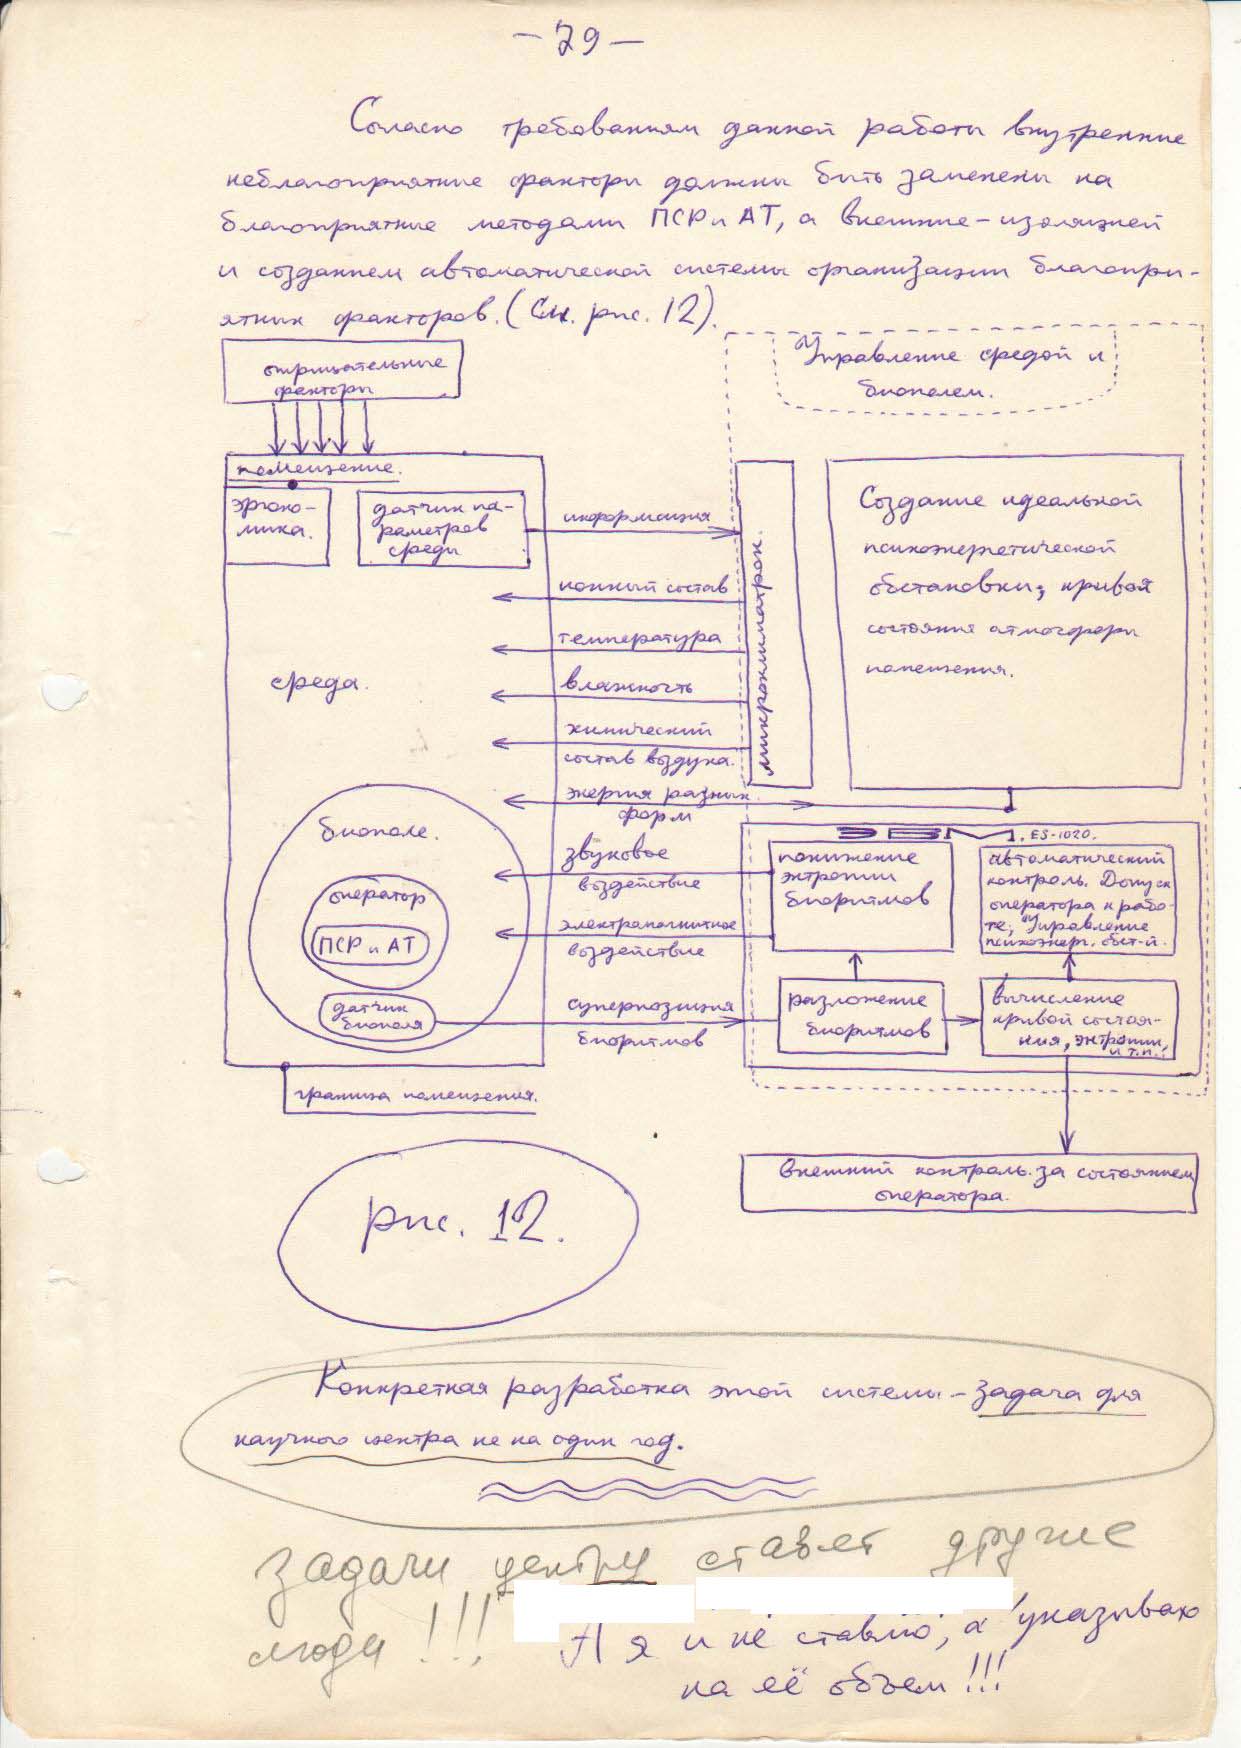 - 79 -
Согласно требованиям данной работы внутренние
неблагоприятные факторы должны быть заменены на
благоприятные методами ПСР и АТ, а внешние - изоляцией
и созданием автоматической системы организации благопри-
ятных факторов. (См. рис. 12).
отрицательные
факторы
Управление средой и
биополем.
помещение.
эргоно-
мика.
датчик па-
раметров
среды
информация
микроклиматрон.
Создание идеальной
психоэнергетической
обстановки, кривой
состояния атмосферы
помещения.
ионный состав
температура
среда.
влажность
химический
состав воздуха.
энергия разных
форм
биополе.
оператор
ПСР и АТ
датчик
биополя
звуковое
воздействие
электромагнитное
воздействие
суперпозиция
биоритмов
ЭВМ. ES-1020.
понижение
энтропии
биоритмов
автоматический
контроль. Допуск
оператора к рабо-
те, Управление
психоэнерг. обст-й.
разложение
биоритмов
вычисление
кривой состоя-
ния, энтропии,
и т.п..
граница помещения.
внешний контроль за состоянием
оператора.
рис. 12.
Конкретная разработка этой системы - задача для
научного центра не на один год.
Задачи центру ставят другие
люди!!!
А я и не ставлю, а указываю
на её объем!!!